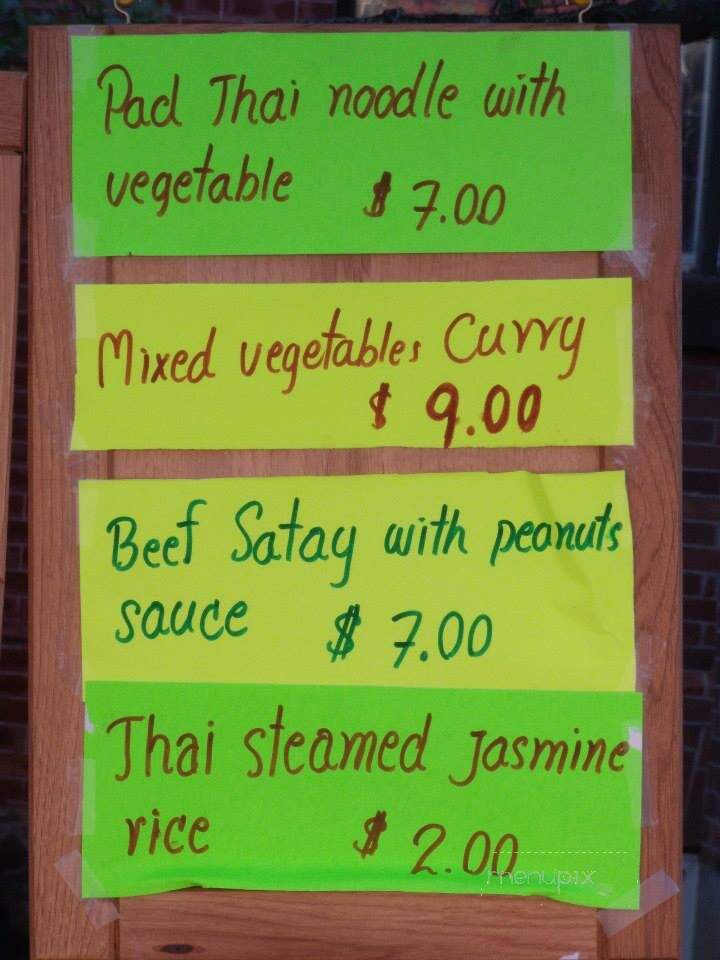 Pad Thai noodle with
vegetable $ 7.00
Mixed vegetables Curry
$ 9.00
Beef Satay with peanuts
sauce $ 7.00
Thai steamed Jasmine
rice $ 2.00
menupix